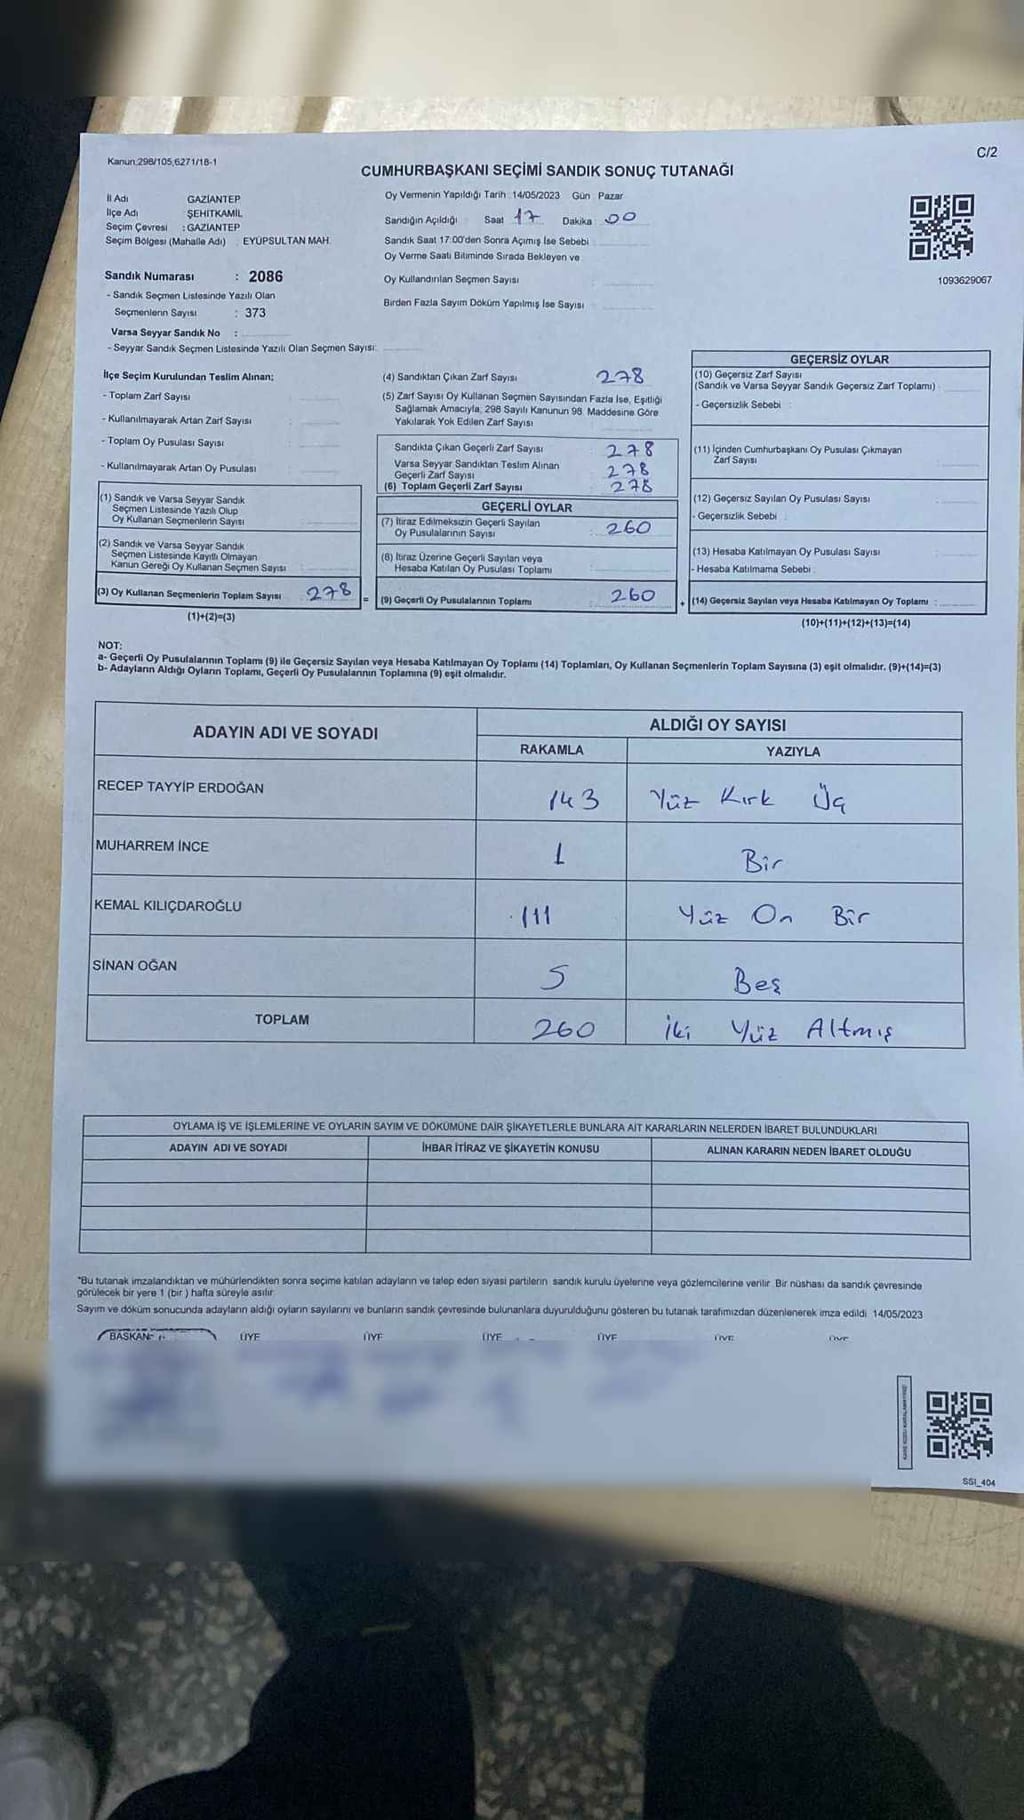 Kanun,298/105,6271/18-1
C/2
CUMHURBAŞKANI SEÇİMİ SANDIK SONUÇ TUTANAĞI
İl Adı GAZİANTEP
İlçe Adı ŞEHİTKAMİL
Seçim Çevresi : GAZİANTEP
Seçim Bölgesi (Mahalle Adı) EYÜPSULTAN MAH.
Oy Vermenin Yapıldığı Tarih 14/05/2023 Gün Pazar
Sandığın Açıldığı Saat 17 Dakika 00
Sandık Saat 17:00'den Sonra Açımış İse Sebebi
Oy Verme Saati Bitiminde Sırada Bekleyen ve
Oy Kullandırılan Seçmen Sayısı
Birden Fazla Sayım Döküm Yapılmış İse Sayısı
1093629067
Sandık Numarası : 2086
- Sandık Seçmen Listesinde Yazılı Olan
Seçmenlerin Sayısı : 373
Varsa Seyyar Sandık No :
- Seyyar Sandık Seçmen Listesinde Yazılı Olan Seçmen Sayısı:
İlçe Seçim Kurulundan Teslim Alınan;
- Toplam Zarf Sayısı
- Kullanılmayarak Artan Zarf Sayısı
- Toplam Oy Pusulası Sayısı
- Kullanılmayarak Artan Oy Pusulası
(1) Sandık ve Varsa Seyyar Sandık
Seçmen Listesinde Yazılı Olup
Oy Kullanan Seçmenlerin Sayısı
(2) Sandık ve Varsa Seyyar Sandık
Seçmen Listesinde Kayıtlı Olmayan
Kanun Gereği Oy Kullanan Seçmen Sayısı
(3) Oy Kullanan Seçmenlerin Toplam Sayısı 278
(1)+(2)=(3)
=
(4) Sandıktan Çıkan Zarf Sayısı 278
(5) Zarf Sayısı Oy Kullanan Seçmen Sayısından Fazla İse, Eşitliği
Sağlamak Amacıyla, 298 Sayılı Kanunun 98. Maddesine Göre
Yakılarak Yok Edilen Zarf Sayısı
Sandıkta Çıkan Geçerli Zarf Sayısı 278
Varsa Seyyar Sandıktan Teslim Alınan
Geçerli Zarf Sayısı 278
(6) Toplam Geçerli Zarf Sayısı 278
GEÇERLİ OYLAR
(7) İtiraz Edilmeksizin Geçerli Sayılan
Oy Pusulalarının Sayısı 260
(8) İtiraz Üzerine Geçerli Sayılan veya
Hesaba Katılan Oy Pusulası Toplamı
(9) Geçerli Oy Pusulalarının Toplamı 260
+
GEÇERSİZ OYLAR
(10) Geçersiz Zarf Sayısı
(Sandık ve Varsa Seyyar Sandık Geçersiz Zarf Toplamı)
- Geçersizlik Sebebi :
(11) İçinden Cumhurbaşkanı Oy Pusulası Çıkmayan
Zarf Sayısı
(12) Geçersiz Sayılan Oy Pusulası Sayısı
- Geçersizlik Sebebi
(13) Hesaba Katılmayan Oy Pusulası Sayısı
- Hesaba Katılmama Sebebi
(14) Geçersiz Sayılan veya Hesaba Katılmayan Oy Toplamı :
(10)+(11)+(12)+(13)=(14)
NOT:
a- Geçerli Oy Pusulalarının Toplamı (9) ile Geçersiz Sayılan veya Hesaba Katılmayan Oy Toplamı (14) Toplamları, Oy Kullanan Seçmenlerin Toplam Sayısına (3) eşit olmalıdır. (9)+(14)=(3)
b- Adayların Aldığı Oyların Toplamı, Geçerli Oy Pusulalarının Toplamına (9) eşit olmalıdır.
ADAYIN ADI VE SOYADI
ALDIĞI OY SAYISI
RAKAMLA YAZIYLA
RECEP TAYYİP ERDOĞAN 143 Yüz Kırk Üç
MUHARREM İNCE 1 Bir
KEMAL KILIÇDAROĞLU 111 Yüz On Bir
SİNAN OĞAN 5 Beş
TOPLAM 260 İki Yüz Altmış
OYLAMA İŞ VE İŞLEMLERİNE VE OYLARIN SAYIM VE DÖKÜMÜNE DAİR ŞİKAYETLERLE BUNLARA AİT KARARLARIN NELERDEN İBARET BULUNDUKLARI
ADAYIN ADI VE SOYADI İHBAR İTİRAZ VE ŞİKAYETİN KONUSU ALINAN KARARIN NEDEN İBARET OLDUĞU
*Bu tutanak imzalandıktan ve mühürlendikten sonra seçime katılan adayların ve talep eden siyasi partilerin sandık kurulu üyelerine veya gözlemcilerine verilir. Bir nüshası da sandık çevresinde
görülecek bir yere 1 (bir ) hafta süreyle asılır.
Sayım ve döküm sonucunda adayların aldığı oyların sayılarını ve bunların sandık çevresinde bulunanlara duyurulduğunu gösteren bu tutanak tarafımızdan düzenlenerek imza edildi. 14/05/2023
BAŞKAN ÜYE ÜYE ÜYE ÜYE ÜYE ÜYE
SSI_404